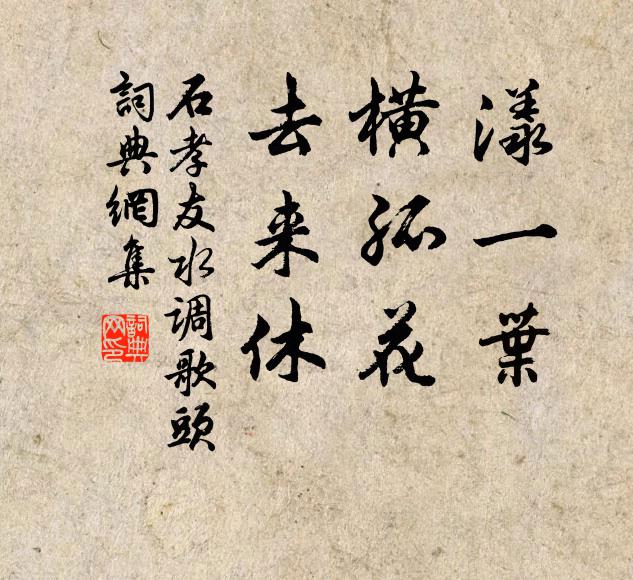 漾一葉
橫孤花
去来休
石孝友水调歌頭
詞典網集
詞典網印